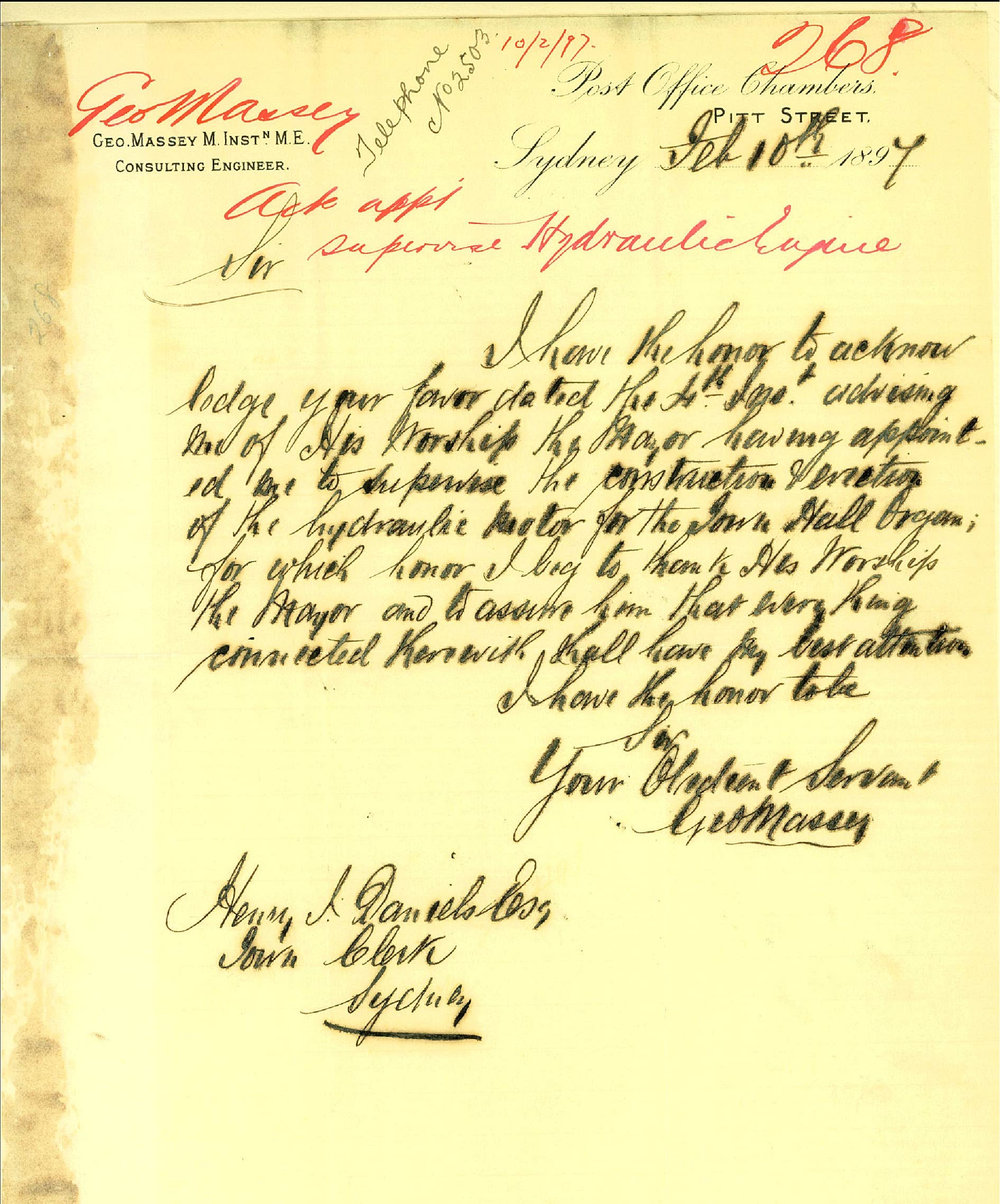 268
10/2/97.
Telephone
No 2503
Post Office Chambers.
PITT STREET.
Geo Massey
GEO. MASSEY M. INSTN. M.E.
CONSULTING ENGINEER.
Sydney Feb 10th 1897
Ack appt
supervise Hydraulic Engine
Sir
I have the honor to acknow
ledge your favor dated the 4th Inst. advising
me of His Worship the Mayor having appoint-
ed me to supervise the construction & erection
of the hydraulic motor for the Town Hall Organ;
for which honor I beg to thank His Worship
the Mayor and to assure him that every thing
connected therewith shall have my best attention
I have the honor to be
Sir
Your Obedient Servant
Geo Massey
Henry J. Daniels Esq
Town Clerk
Sydney
268